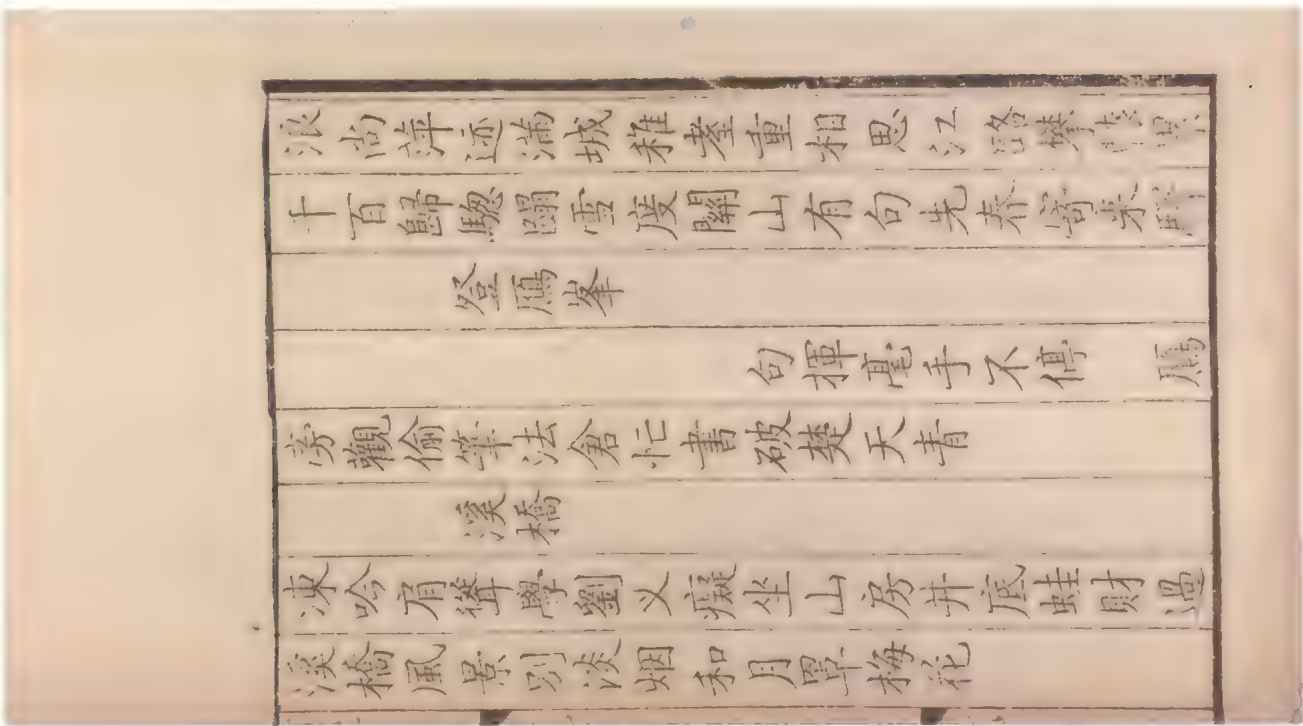 浪尚萍迹滿城稚耋重相思江路
千百歸驄蹋雪度關山有句先春寄東
登鴈峯
句揮毫手不停　鴈
旁觀偷筆法倉忙書破楚天青
溪橋
凍吟肩聳學劉乂癡坐山房井底蛙財過
溪橋風景別淡烟和月罩梅花